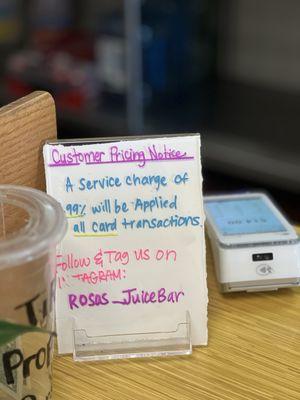 Customer Pricing Notice
A Service charge of
99% will be Applied
all card transactions
Follow & Tag us on
TAGRAM:
ROSAS_JuiceBar